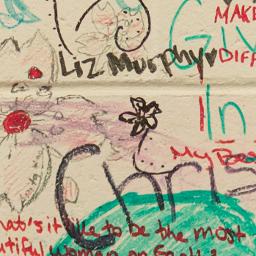 MAKE
Liz Murphy
DIFF
In
My Bod
Chris
hat's it like to be the most
utiful woman on Earth?